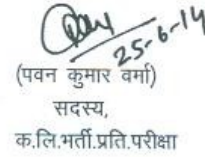 25-6-14
(पवन कुमार वर्मा)
सदस्य,
क.लि.भर्ती.प्रति.परीक्षा